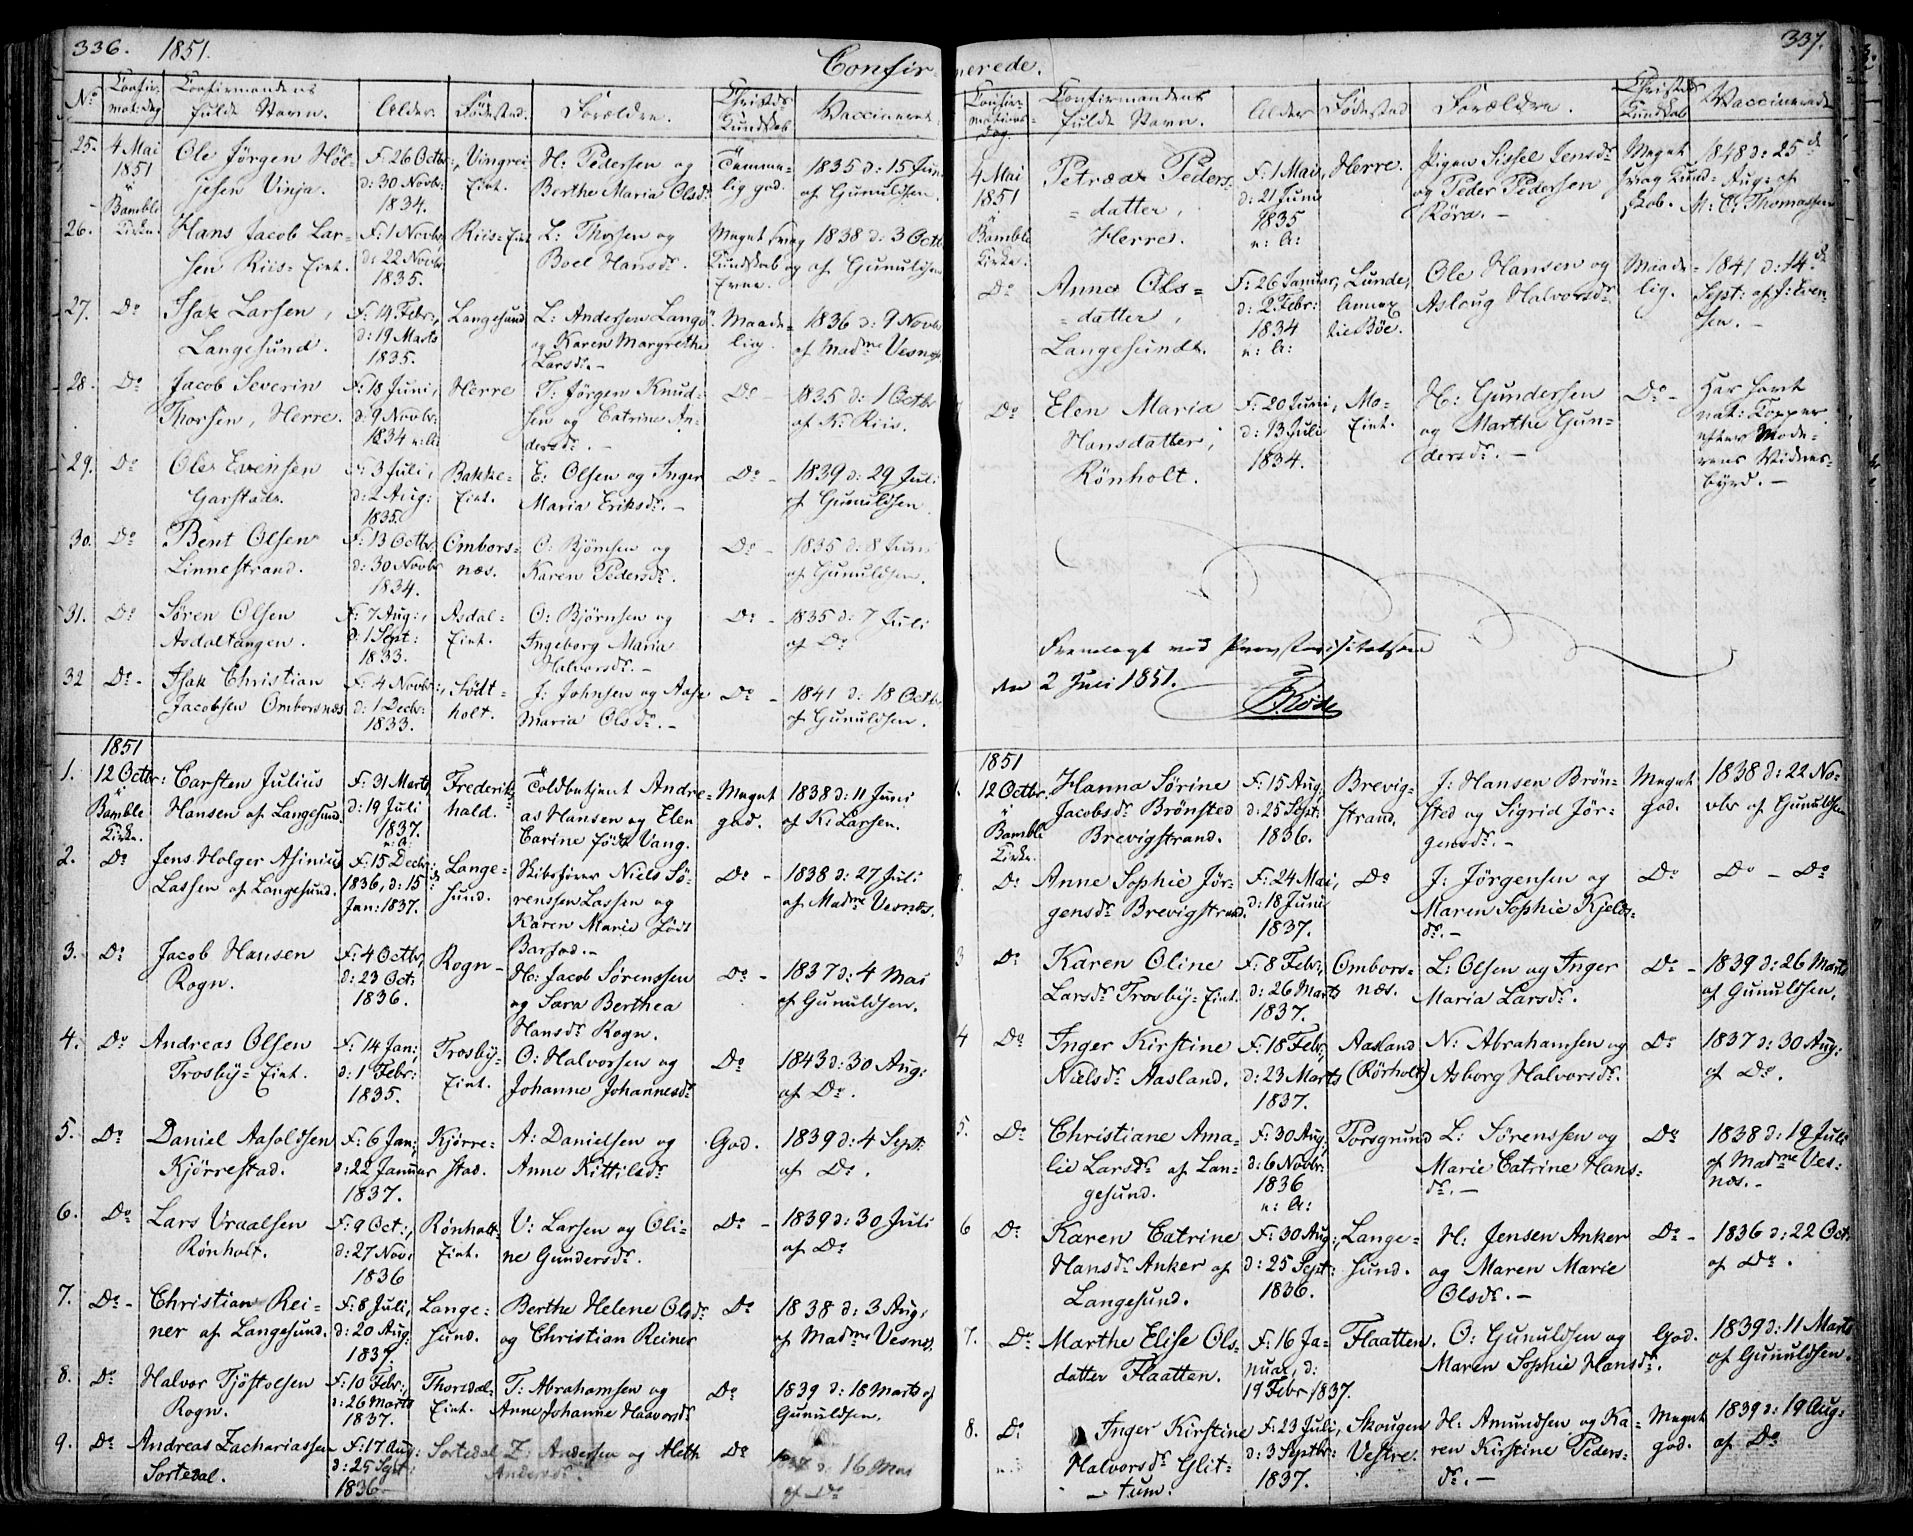 336. 1851. Confir-
No Confir-mat: dag Confirmandens fulde Navn. Alder. Fødested. Forældre. Christds Kundskab Vaccineret
25. 4 Mai 1851 i Bamble Kirke. Ole Jörgen Höl-
jesen Vinje. F: 26 Octbr:, d: 30 Novb: 1834. Vingrei-
Eiet. H: Pedersen og
Berthe Maria Olsdr. Temme-
lig god. 1835 d: 15 Juni
af Gunuldsen.
26. Hans Jacob Lar-
sen Riis-Eiet. F: 1 Novbr d: 22 Novbr 1835. Riis-Eiet L: Thorsen og
Boel Hansdr. Meget svag
Kundskab og
Evne. 1838 d: 3 Octb
af Gunuldsen
27. Do Isak Larsen,
Langesund. F: 14 Febr:, d: 19 Marts 1835. Langesund L: Andersen Langö
og Karen Margrethe
Larsdr. - Maade-
lig. 1836 d: 9 Novbr
af Madme Vesnes.
28. Do Jacob Severin
Thorsen, Herre. F: 18 Juni, d: 9 Novbr: 1834 v: A: Herre T: Jörgen Knud-
sen og Catrine An-
dersdr. - Do - 1835 d: 1 Octbr
af K: Riis.
29. Do Ole Evensen
Garstad. F: 3 Juli, d: 2 Aug: 1835. Bakke-
Eiet. E: Olsen og Inger
Maria Eriksdr. - Do - 1839 d: 29 Juli
af Gunuldsen.
30. Do Bent Olsen
Linnestrand. F: 13 Octbr d: 30 Novbr 1834. Ombors-
næs. O: Bjørnsen og
Karen Pedersdr. Do - 1835 d: 8 Juni
af Gunuldsen.
31. Do Søren Olsen
Asdaltangen. F: 7 Aug:, d: 1 Sept: 1833. Asdal-
Eiet. O: Bjørnsen og
Ingeborg Maria
Halvorsdr. - Do - 1835 d: 7 Juli
af Do
32 Do - Isak Christian
Jacobsen Omborsnæs F: 4 Novbr:, d: 1 Decb: 1833. Südt-
holt. J: Johnsen og Aase
Maria Olsdr. - Do - 1841 d: 18 Octb:
af Gunuldsen.
1. 1851 12 Octbr: i Bamble Kirke. Carsten Julius
Hansen af Langesund. F: 31 Marts d: 19 Juli 1837. v: A: Frederiks-
hald. Toldbetjent Andre-
as Hansen og Elen
Carine født Vang. Meget
god. 1838 d: 11 Juni
af K: Larsen.
2. Do Jens Holger Asinius
Lassen af Langesund. F: 15 Decbr: 1836, d: 15 Jan: 1837. Lange-
sund. Skibsfører Niels Sö-
renssen Lassen og
Karen Marie født
Barfod. - Do - 1838 d: 27 Juli
af Madme Vesnes.
3. Do Jacob Hansen
Rogn. F: 4 Octbr, d: 23 Oct: 1836. Rogn - H: Jacob Sørenssen
og Sara Berthea
Hansdr Rogn. Do - 1837 d: 4 Mai
af Gunuldsen.
4. Do Andreas Olsen
Trosby-Eiet. F: 14 Jan:, d: 1 Febr: 1835. Trosby-
Eiet. O: Halvorsen og
Johanne Johannesdr Do 1843 d: 30 Aug:
af Do.
5. Do Daniel Aasoldsen
Kjörrestad. F: 6 Jan:, d: 22 Januar 1837. Kjörre-
stad. A: Danielsen og
Anne Kittilsdr God. 1839 d: 4 Sept:
af Do.
6. Do Lars Vraalsen
Rönholt. F: 9 Oct:, d: 27 Nov: 1836 Rønholt-
Eiet. V: Larsen og Oli-
ne Gundersdr. Do - 1839 d: 30 Juli
af Do
7. Do - Christian Rei-
ner af Langesund. F: 8 Juli, d: 20 Aug: 1837. Lange-
sund. Berthe Helene Olsdr
og Christian Reiner Do 1838 d: 3 Aug:
af Madme Vesnes.
8. Do Halvor Tjöstolsen
Rogn. F: 10 Febr:, d: 26 Marts 1837. Thorsdal-
Eiet. T: Abrahamsen og
Anne Johanne Haavorsdr Do 1839 d: 18 Marts af
Gunuldsen.
9. Do Andreas Zachariassen
Sortedal. F: 17 Aug: d: 25 Sept: 1836 Sortedal Z: Andersen og Aleth
Andersdr. Do d: 16 Mai
af Do
337.
nerede.
Confir-mations-dag. Confirmandens fulde Navn. Alder Fødested Forældre. Christds Kundskab Vaccinerede
4 Mai 1851 i Bamble Kirke. Petrea Peders-
datter,
Herre. F: 1 Mai, d: 21 Juni 1835 v: A: Herre. Pigen Sissel Jensdr
og Peder Pedersen
Röra. - Meget
svag Kund-
skab. 1848 d: 25de
Aug: af
M: C: Thomassen
Do Anne Ols-
datter,
Langesund. F: 26 Januar, d: 2 Febr: 1834 v: A: Lunde,
annex
til Böe. Ole Hansen og
Aslaug Halvorsdr. Maade-
lig. 1841 d: 14de
Sept: af J: Even-
sen. -
Do Elen Maria
Hansdatter,
Rönholt. F: 20 Juni, d: 13 Juli 1834. Mo-
Eiet. H: Gundersen
og Marthe Gun-
dersdr. - Do - Har havt
nat: Kopper
efter Mode-
rens Vidnes-
byrd. -
Fremlagt ved Provstevisitatsen
den 2 Juli 1851.
1. 1851 12 Octbr: i Bamble Kirke. Hanna Sörine
Jacobsdr Brönsted
Brevigstrand. F: 15 Aug, d: 25 Sept: 1836. Brevig-
strand. J: Hansen Brön-
sted og Sigrid Jör-
gensdr. - Meget
god. 1838 d: 22 No-
vbr af Gunuldsen
2. Do Anne Sophie Jör-
gensdr Brevigstrand. F: 24 Mai, d: 18 Juni 1837. Do J: Jörgensen og
Maren Sophie Kjelds-
dr. - Do Do - Do
3 Do Karen Oline
Larsdr Trosby-Eiet. F: 8 Febr:, d: 26 Marts 1837. Ombors-
næs. L: Olsen og Inger
Maria Larsdr. Do - 1839 d: 26 Marts
af Gunuldsen.
4 Do Inger Kirstine
Nielsdr Aasland. F: 18 Febr:, d: 23 Marts 1837. Aasland
(Rørholt) N: Abrahamsen og
Asborg Halvorsdr. Do 1837 d: 30 Aug:
af Do.
5. Do Christiane Ama-
lie Larsdr af Lan-
gesund. F: 30 Aug, d: 6 Novbr: 1836 v: A: Porsgrund L: Sørenssen og
Marie Catrine Hans-
dr. - Do 1838 d: 19 Juli
af Madme Ves-
næs. -
6 Do Karen Catrine
Hansdr Anker af
Langesund. F: 30 Aug:, d: 25 Sept: 1836. Lange-
sund. H: Jensen Anker
og Maren Marie
Olsdr. - Do - 1836 d: 22 Oct:
af Do.
7. Do Marthe Elise Ols-
datter Flaatten. F: 16 Ja-
nuar, d:
19 Febr 1837. Flaatten. O: Gunuldsen og
Maren Sophie Hansdr. God. 1839 d: 11 Marts
af Gunuldsen.
8. Do Inger Kirstine
Halvorsdr Glit-
tum. F: 23 Juli, d: 3 Septbr: 1837. Skougen
Vestre. H: Amundsen og Ka-
ren Kirstine Peders-
dr. - Meget
god. 1839 d: 19 Aug:
af Do